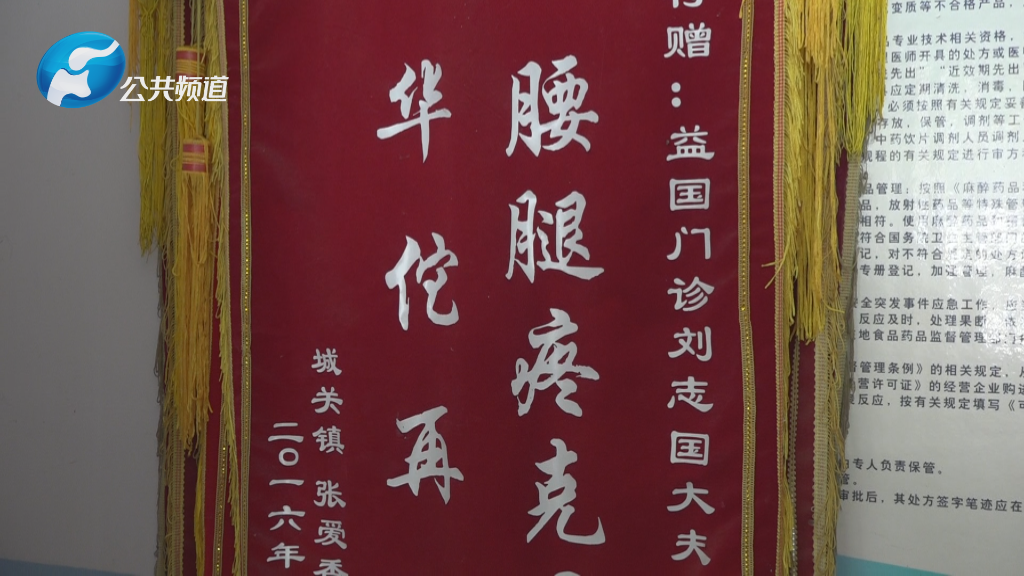 公共频道
赠：益国门诊刘志国大夫
腰腿疼克
华佗再
城关镇 张爱香
二〇一六年
变质等不合格产品，
专业技术相关资格，
医师开具的处方或医
先出”“近效期先出”
应定期清洗、消毒，
必须按照有关规定妥
存放，保管，调剂等工
中药饮片调剂人员调剂
规程的有关规定进行审方
品管理：按照《麻醉药品
品，放射性药品等特殊管
相符。使用
符合国务院卫生
记，对不符合
专册登记，加强管理，麻
全突发事件应急工作，
反应及时，处理果断，依
地食品药品监督管理部门
管理条例》的相关规定，从
营许可证》的经营企业购进
反应，按有关规定填写《可
专人负责保管。
管。
审批后，其处方签字笔迹应在